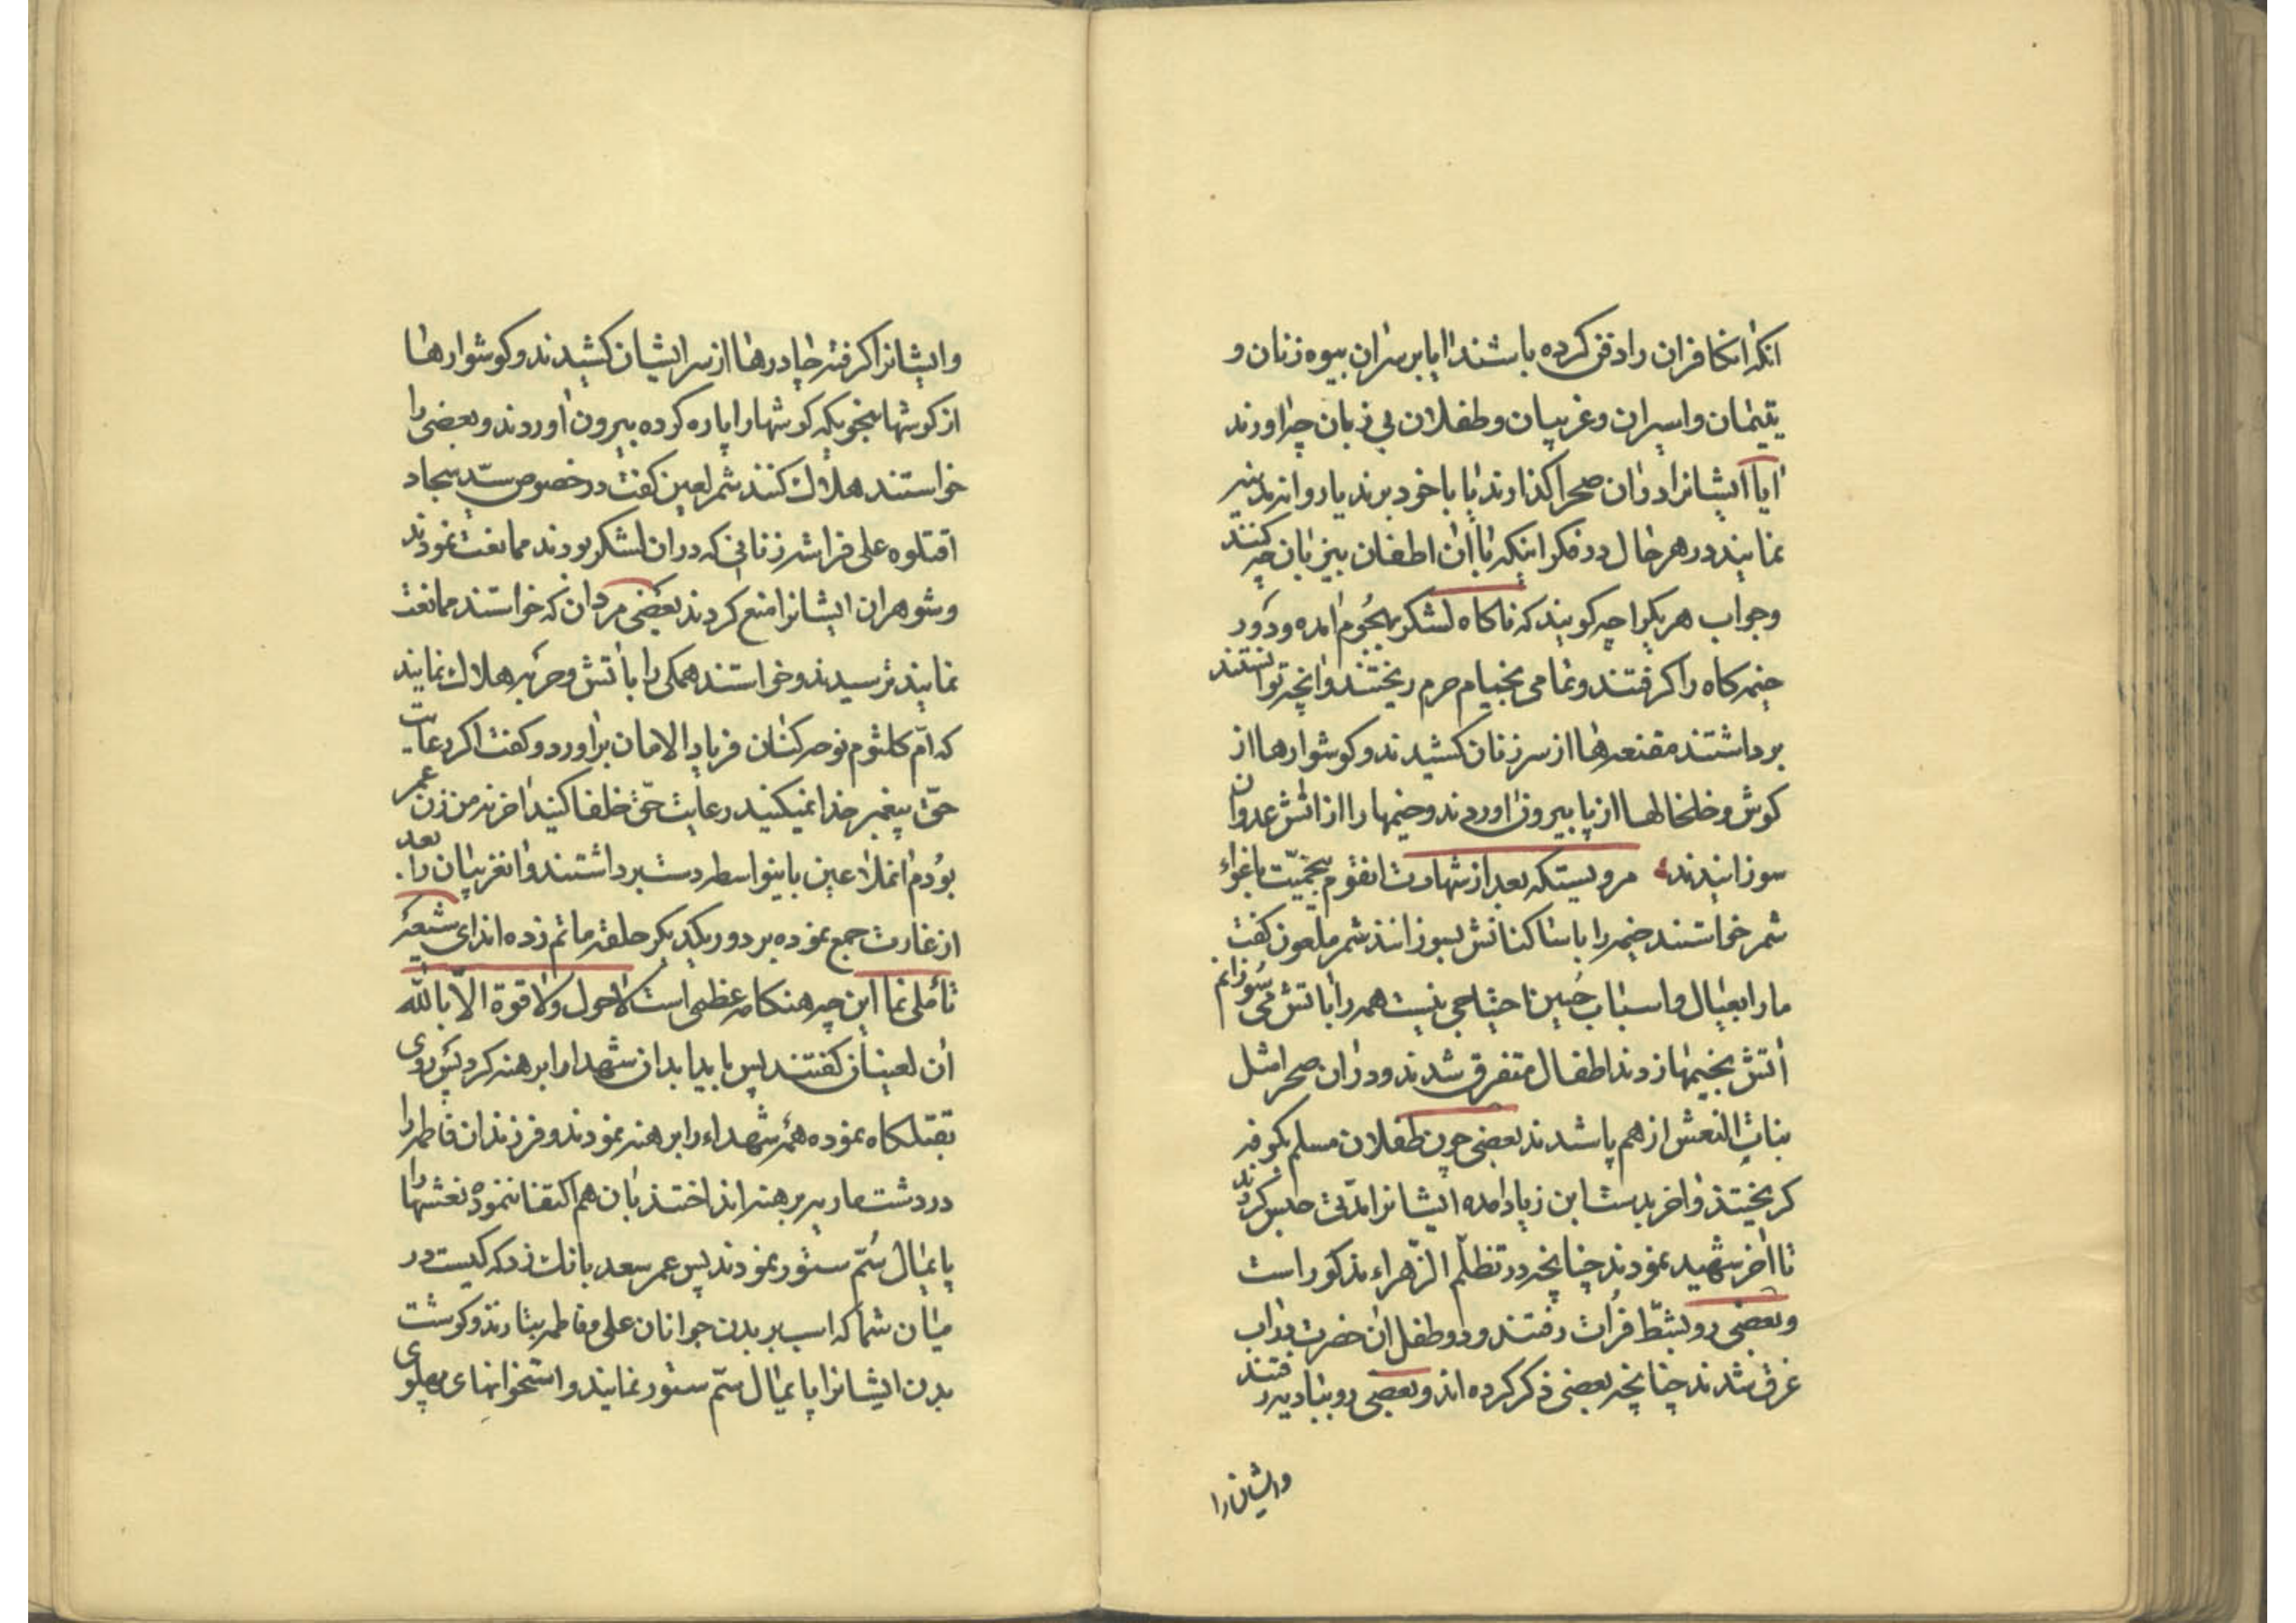 انکه انکافران را دفن کرده باشند ایا بر سران بیوه زنان و
یتیمان و اسیران و غریبان و طفلان بی زبان چه اورند
ایا ایشانرا در ان صحرا گذارند یا با خود برند یا روانه مدینه
نمایند در هر حال در فکر اینکه با ان اطفان بیزبان چه کنند
وجواب هر یکرا چه کویند که ناکاه لشکر بهجوم امده و دور
خیمه کاه را کرفتند و تمامی بخیام حرم ریختند و انچه توانستند
برداشتند مقنعه ها از سر زنان کشیدند و کوشوارها از
کوش و خلخالها از پا بیرون اوردند و خیمها را از اتش عدوان
سوزانیدند مرویستکه بعد از شهادت انقوم بیحمیّت باغواء
شمر خواستند خیمه را با ساکنانش بسوزانند شمر ملعون کفت
ما را بعیال و اسباب حُسین احتیاجی نیست همه را باتش می سُوزانم
اتش بخیمها زدند اطفال متفرق شدند و در ان صحرا مثل
بنات النعش از هم پاشدند بعضی چون طفلان مسلم بکوفه
کریختند و اخر بدست ابن زیاد امده ایشانرا مدّتی حبس کردند
تا اخر شهید نمودند چنانچه در تظلّم الزّهراء مذکور است
و بعضی رو بشطّ فرات رفتند و دو طفل ان حضرت در اب
غرق شدند چنانچه بعضی ذکر کرده اند و بعضی رو ببادیه رفتند
و ایشان را
و ایشانرا کرفته چادرها از سر ایشان کشیدند و کوشوارها
از کوشها بنحویکه کوشها را پاره کرده بیرون اوردند و بعضی را
خواستند هلاک کنند شمر لعین کفت در خصوص سیّد سجاد
اقتلوه علی فراشه زنانی که در ان لشکر بودند ممانعت نمودند
و شوهران ایشانرا منع کردند بعضی مردان که خواستند ممانعت
نمایند ترسیدند و خواستند همکی را باتش و حربه هلاک نمایند
که امّ کلثوم نوحه کنان فریاد الامان براورد و کفت اکر رعایت
حقّ پیغمبر خدا نمیکنید رعایت حقّ خلفا کنید اخر نه من زن عمر
بودم انملاعین باینواسطه دست برداشتند و انغریبان را . بعد
از غارت جمع نموده بر دور یکدیکر حلقه ماتم زده اند ای شیعه
تأملی نما این چه هنکامه عظیمی است لا حول ولا قوة الّا بالله
ان لعینان کفتند پس باید ابدان شهدا را برهنه کرد پس روی
بقتلکاه نموده همه شهداء را برهنه نمودند و فرزندان فاطمه را
در دشت ماریه برهنه انداختند بان هم اکتفا ننموده نعشها را
پایمال سُمّ ستور نمودند پس عمر سعد بانک زد که کیست در
میان شما که اسب بر بدن جوانان علی و فاطمه بتازند و کوشت
بدن ایشانرا پایمال سمّ ستور نمایند و استخوانهای پهلوی